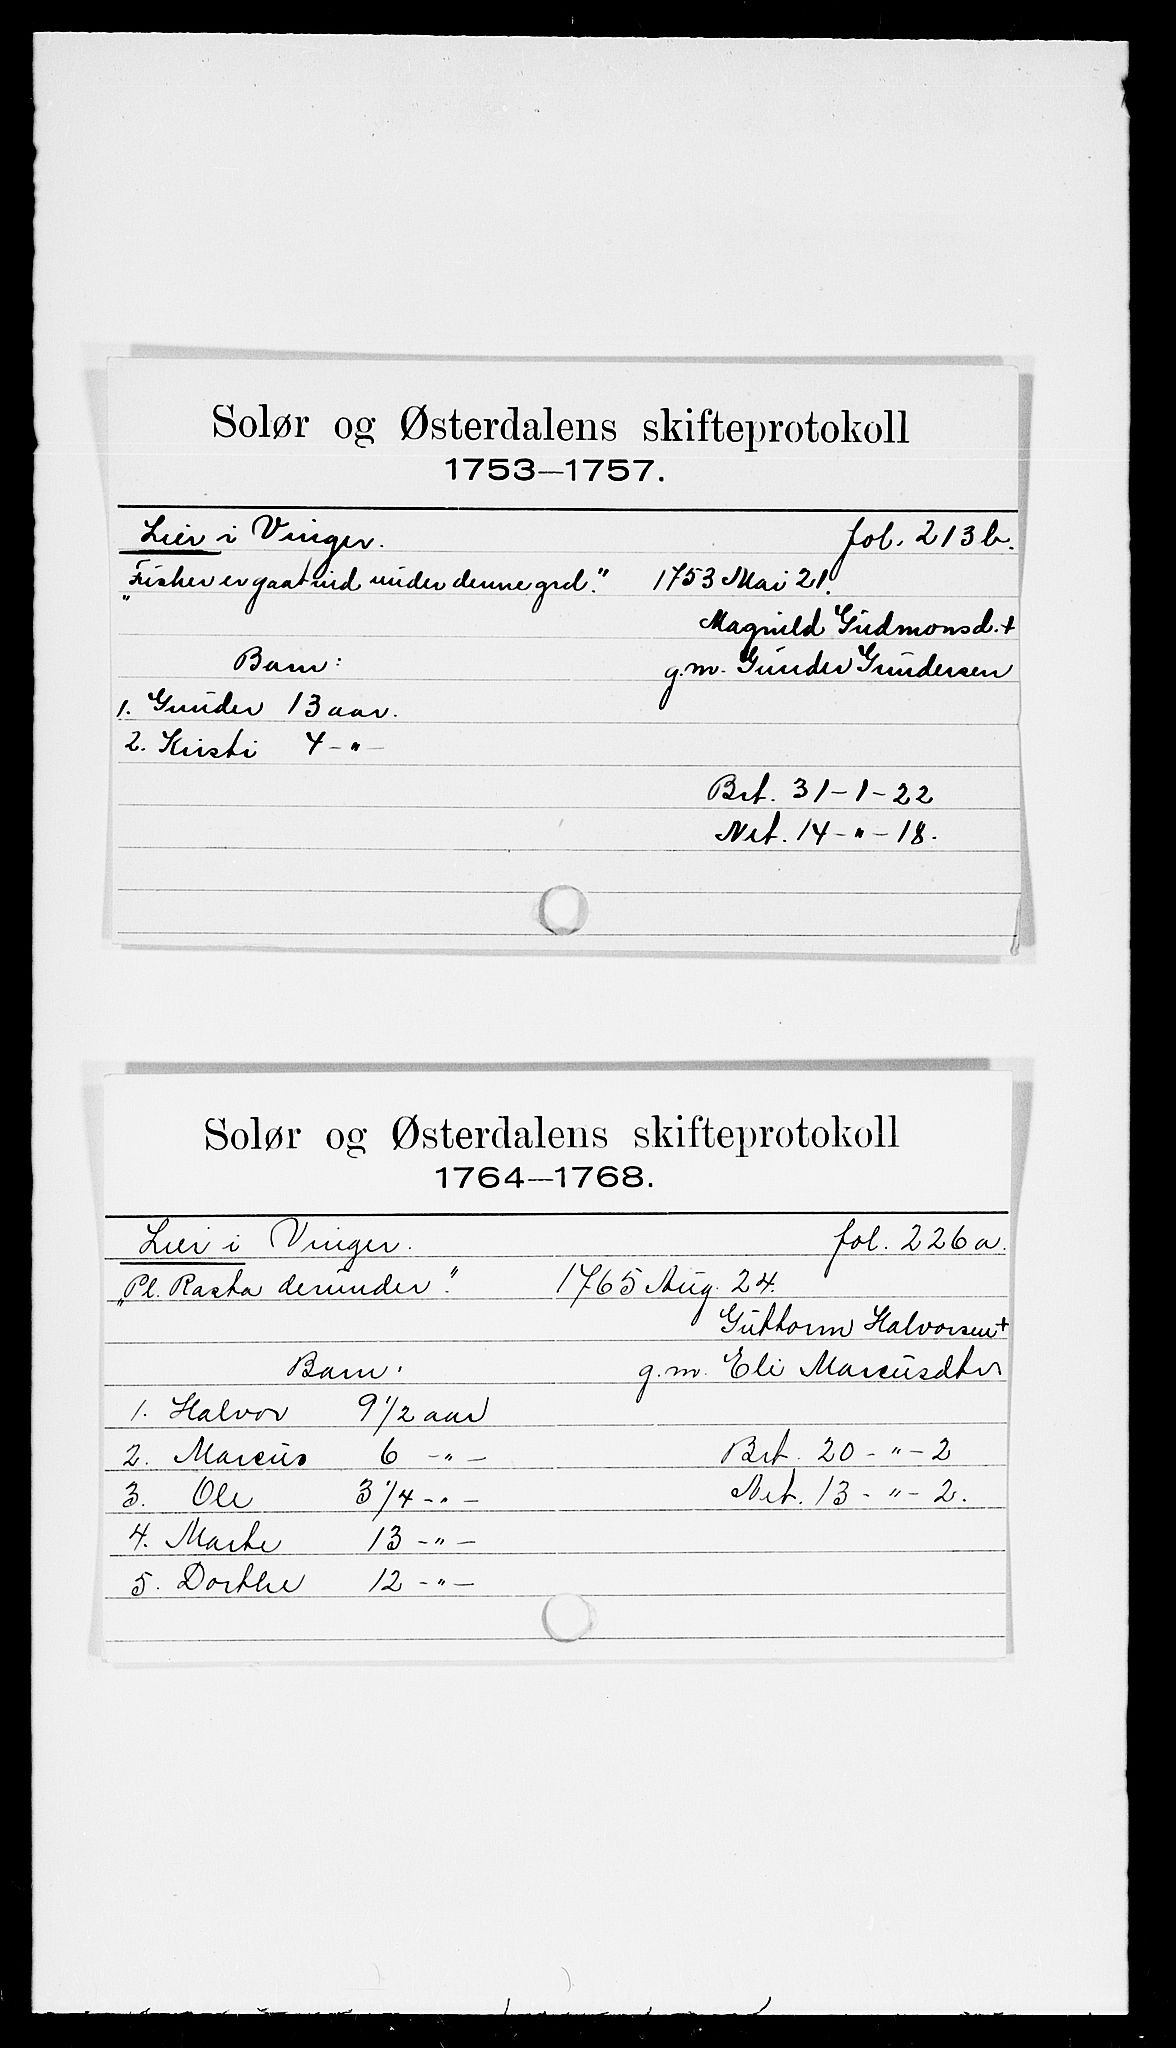 Solør og Østerdalens skifteprotokoll
1753—1757.
Lier i Vinger. fol. 213 b.
"Fisker er gaat ind under denne grd." 1753 Mai 21.
Magnild Gudmonsd. +
Barn: g.m. Gunder Gundersen
1. Gunder 13 aar.
2. Kirsti 4 - " -
Brt. 31 - 1 - 22
Net. 14 - " - 18.
Solør og Østerdalens skifteprotokoll
1764—1768.
Lier i Vinger. fol. 226 a.
"Pl. Rasta derunder". 1765 Aug. 24.
Guttorm Halvorsen +
Barn: g.m. Eli Marcusdtr
1. Halvor 9 1/2 aar
2. Marcus 6 - " - Brt. 20 - " - 2
3. Ole 3 1/4 - " - Net. 13 - " - 2.
4. Marte 13 - " -
5. Dorthe 12 - " -